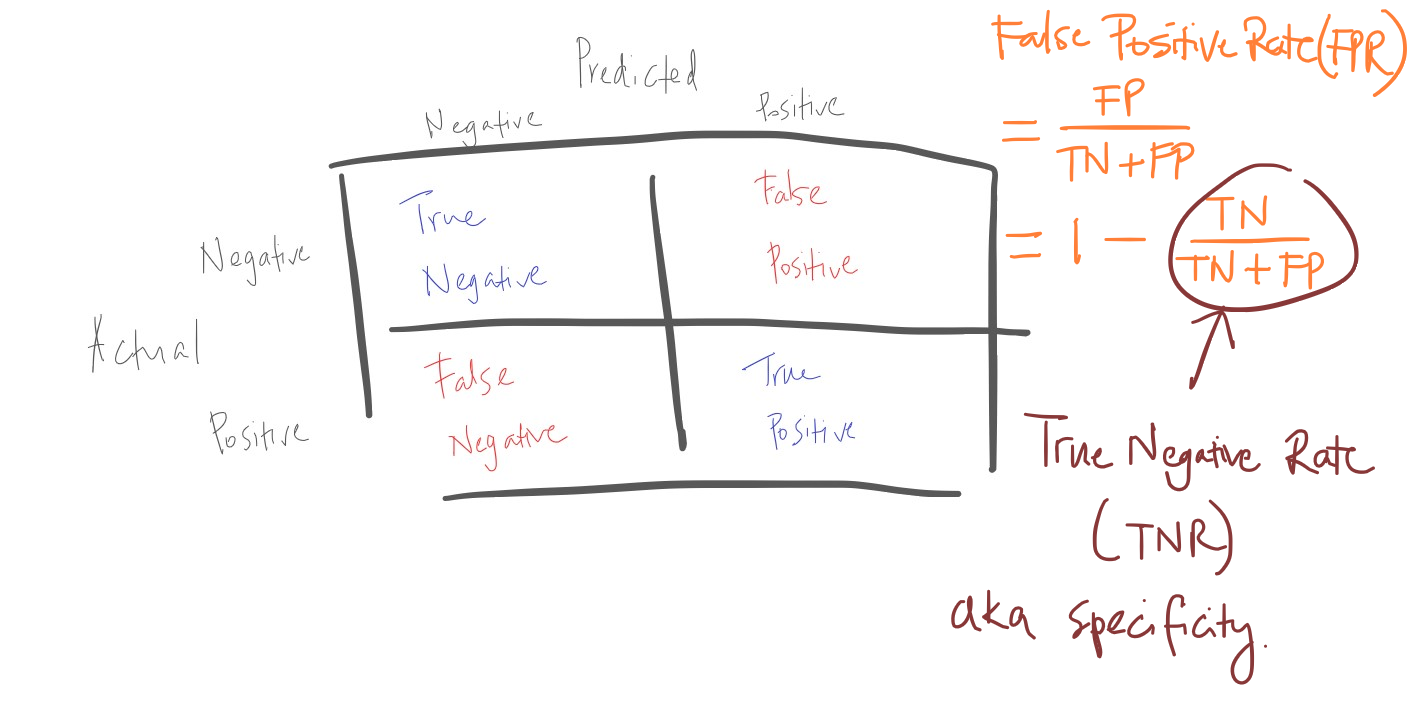 Predicted
Negative Positive
Actual
Negative
True
Negative
False
Positive
Positive
False
Negative
True
Positive
False Positive Rate (FPR)
= FP
TN + FP
= 1 - TN
TN + FP
True Negative Rate
(TNR)
aka specificity.